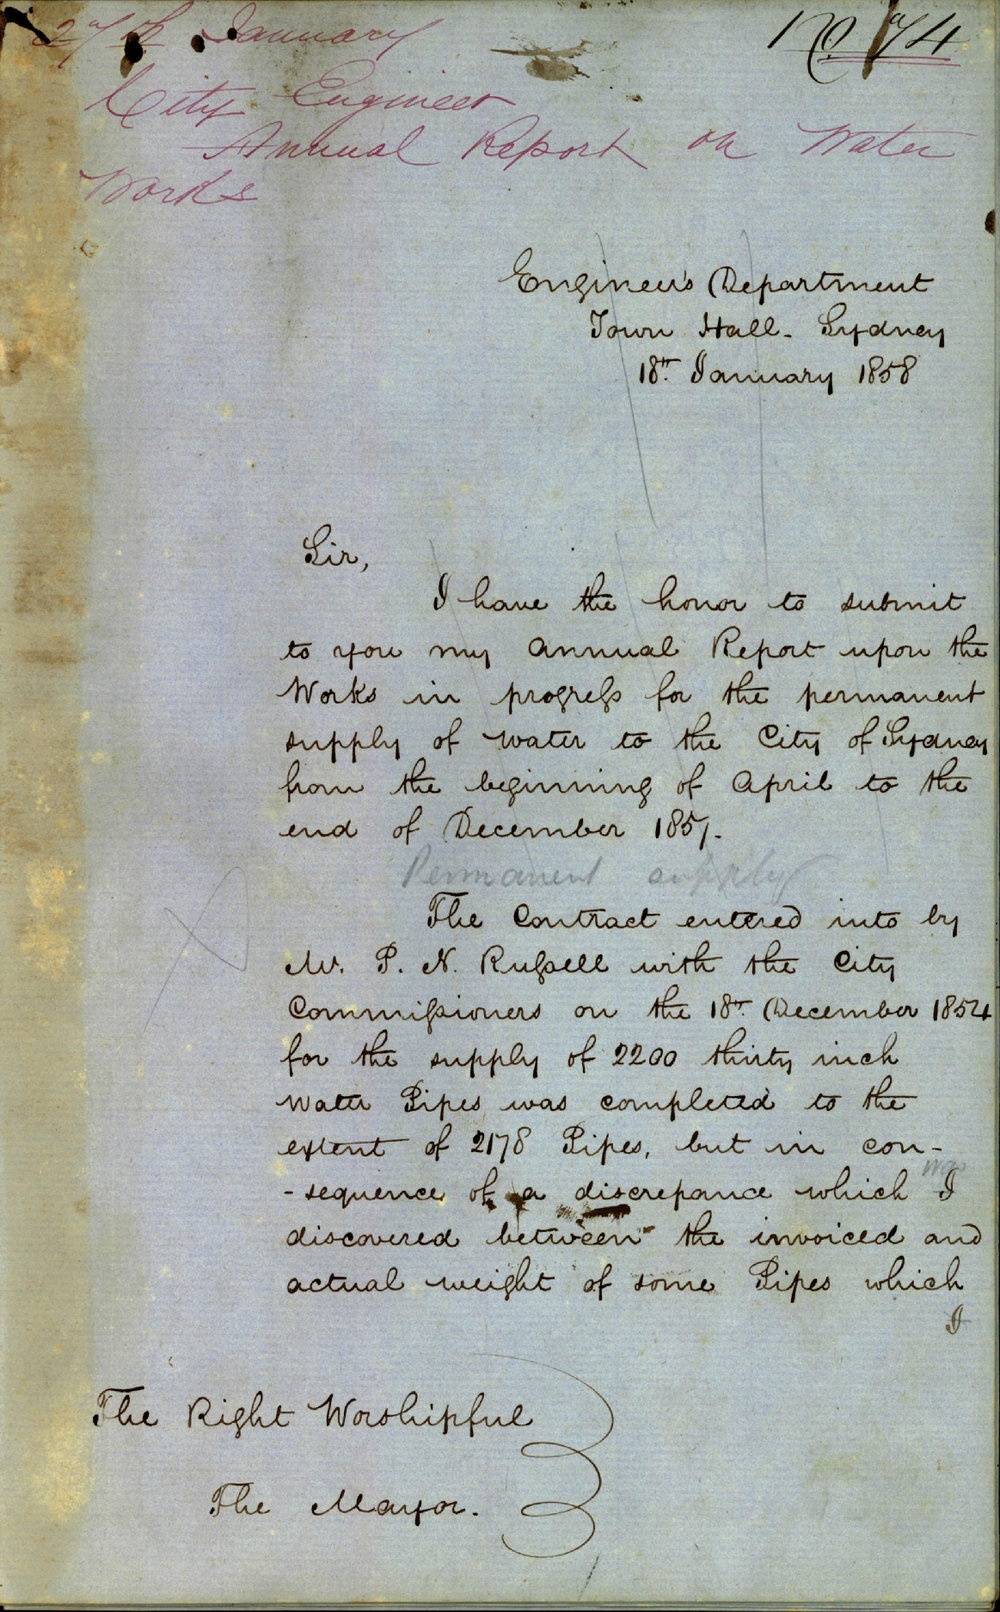 27th January
No. 74
City Engineer
Annual Report on Water
Works
Engineer's Department
Town Hall - Sydney
18th January 1858
Sir,
I have the honor to submit
to you my Annual Report upon the
Works in progress for the permanent
supply of water to the City of Sydney
from the beginning of April to the
end of December 1857.
Permanent supply
The Contract entered into by
Mr. P. N. Russell with the City
Commissioners on the 18th December 1854
for the supply of 2200 thirty inch
Water Pipes was completed to the
extent of 2178 Pipes, but in con-
-sequence of a discrepance which I
discovered between the invoiced and
actual weight of some Pipes which
I
The Right Worshipful
The Mayor.